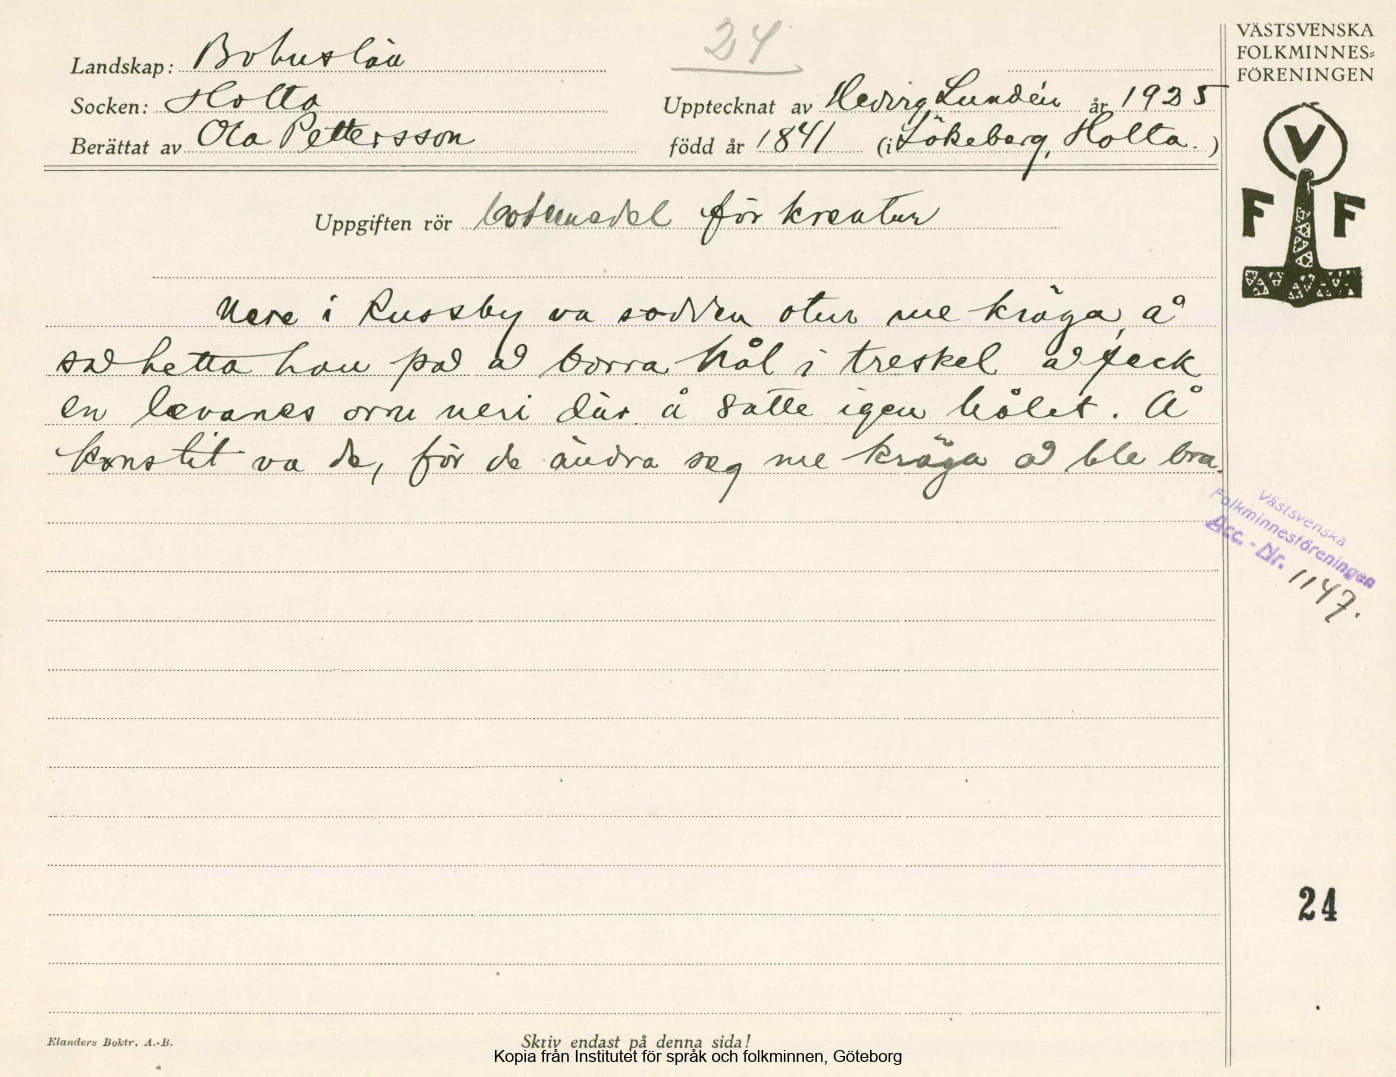 24
VÄSTSVENSKA
FOLKMINNES-
FÖRENINGEN
Landskap: Bohuslän
Socken: Holta
Upptecknat av Hedvig Lundén år 1925
Berättat av Ola Pettersson
född år 1841 (i Lökeberg, Holta.)
V
F F
Uppgiften rör botemedel för kreatur
Nere i Russby va sodden otur me kräga, å
så hetta han på å borra hål i treskel å feck
en levanes orm neri där å satte igen hålet. Å
konstit va de, för de ändra seg me kräga å ble bra.
Västsvenska
Folkminnesföreningen
Acc. - Nr. 1147.
24
Elanders Boktr. A.-B.
Skriv endast på denna sida!
Kopia från Institutet för språk och folkminnen, Göteborg